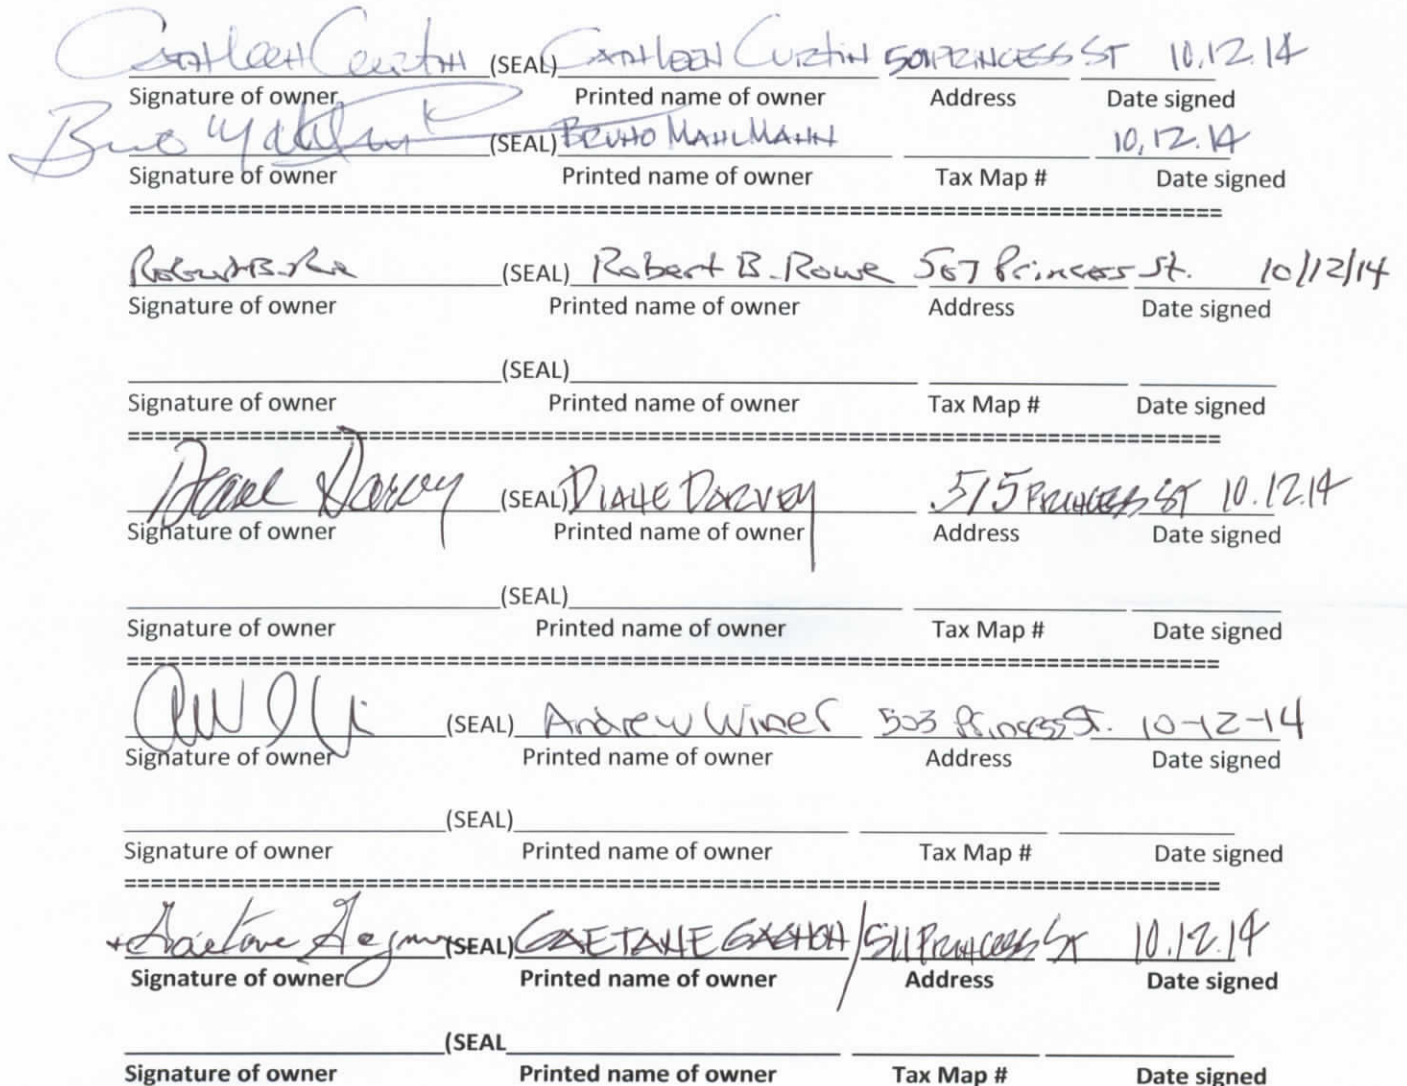 Cathleen Curtin (SEAL) CATHLEEN CURTIN 501 PRINCESS ST 10.12.14
Signature of owner Printed name of owner Address Date signed
(SEAL) BRUNO MAHLMANN 10.12.14
Signature of owner Printed name of owner Tax Map # Date signed
================================================================================
Robert B. Rowe (SEAL) Robert B. Rowe 507 Princess St. 10/12/14
Signature of owner Printed name of owner Address Date signed
(SEAL)
Signature of owner Printed name of owner Tax Map # Date signed
================================================================================
Diane Darvey (SEAL) DIANE DARVEY 515 PRINCESS ST 10.12.14
Signature of owner Printed name of owner Address Date signed
(SEAL)
Signature of owner Printed name of owner Tax Map # Date signed
================================================================================
(SEAL) Andrew Winer 503 Princess St. 10-12-14
Signature of owner Printed name of owner Address Date signed
(SEAL)
Signature of owner Printed name of owner Tax Map # Date signed
================================================================================
Gaetane (SEAL) GAETANE / 511 PRINCESS ST 10.12.14
Signature of owner Printed name of owner Address Date signed
(SEAL
Signature of owner Printed name of owner Tax Map # Date signed